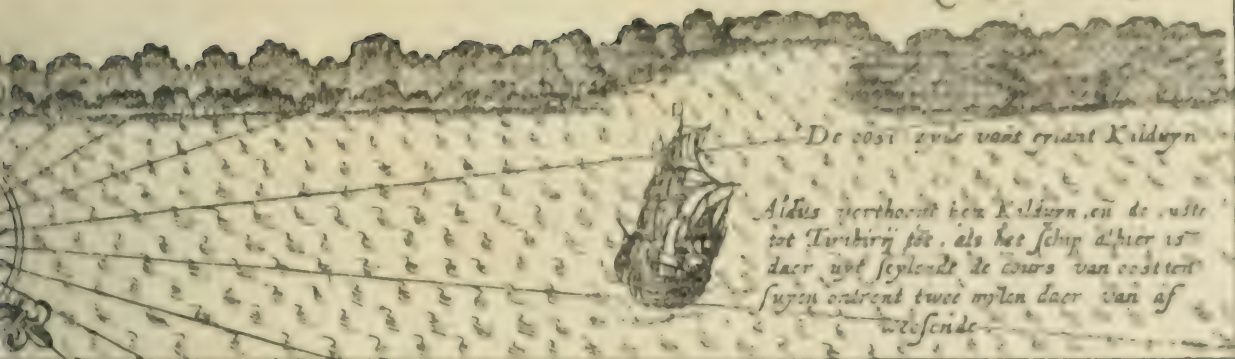 De oost zyde vant eylant Kilduyn
Aldus verthoont hem Kilduyn, en de custe
tot tot, als het schip alhier is
daer uyt seylende de cours van oost ten
suyen ontrent twee mylen daer van af
wesende